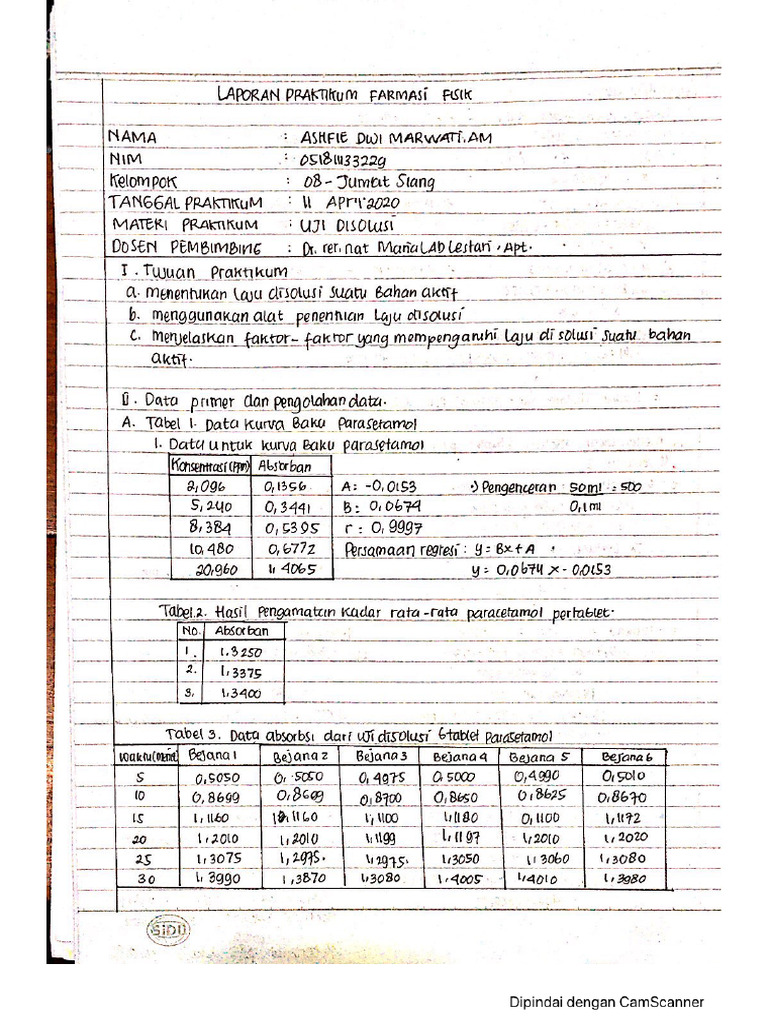 LAPORAN PRAKTIKUM FARMASI FISIK
NAMA : ASHFIE DWI MARWATI.AM
NIM : 051811133229
Kelompok : 08 - Jumat Siang
TANGGAL PRAKTIKUM : 11 April 2020
MATERI PRAKTIKUM : UJI DISOLUSI
DOSEN PEMBIMBING : Dr. rer. nat Maria LAD Lestari, Apt.
I. Tujuan Praktikum
a. menentukan laju disolusi suatu Bahan aktif
b. menggunakan alat penentuan Laju disolusi
c. menjelaskan faktor-faktor yang mempengaruhi laju disolusi suatu bahan
aktif.
II. Data primer dan pengolahan data.
A. Tabel 1. Data Kurva Baku Parasetamol
1. Data untuk kurva Baku parasetamol
Konsentrasi (ppm) Absorban
2,096 0,1356 A: -0,0153 •) Pengenceran 50ml = 500
5,240 0,3441 B: 0,0674 0,1ml
8,384 0,5395 r: 0,9997
10,480 0,6772 Persamaan regresi: y = Bx + A
20,960 1,4065 y = 0,0674 x - 0,0153
Tabel.2. Hasil Pengamatan Kadar rata-rata paracetamol pertablet.
No. Absorban
1. 1,3250
2. 1,3375
3. 1,3400
Tabel 3. Data absorbsi dari uji disolusi 6 tablet parasetamol
Waktu (menit) Bejana 1 Bejana 2 Bejana 3 Bejana 4 Bejana 5 Bejana 6
5 0,5050 0,5050 0,4975 0,5000 0,4990 0,5010
10 0,8699 0,8699 0,8700 0,8650 0,8625 0,8670
15 1,1160 1,1160 1,1100 1,1180 0,1100 1,1172
20 1,2010 1,2010 1,1199 1,1197 1,2010 1,2020
25 1,3075 1,2975. 1,2975. 1,3050 1,3060 1,3080
30 1,3990 1,3870 1,3080 1,4005 1,4010 1,3980
SiDU
Dipindai dengan CamScanner